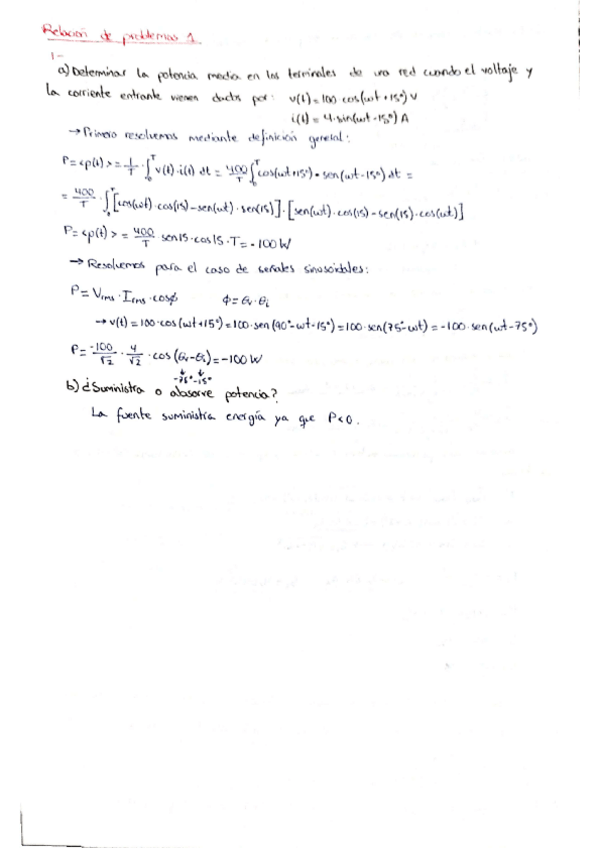 Relación de problemas 1.
1-
a) Determinar la potencia media en los terminales de una red cuando el voltaje y
la corriente entrante vienen dados por: v(t) = 100 cos(ωt + 15º) V
i(t) = 4·sin(ωt - 15º) A
→ Primero resolvemos mediante definición general:
P = <p(t)> = 1/T · ∫₀ᵀ v(t)·i(t) dt = 400/T ∫₀ᵀ cos(ωt+15º)·sen(ωt-15º) dt =
= 400/T · ∫₀ᵀ [cos(ωt)·cos(15) - sen(ωt)·sen(15)]·[sen(ωt)·cos(15) - sen(15)·cos(ωt)]
P = <p(t)> = 400/T · sen15·cos15·T = -100 W
→ Resolvemos para el caso de señales sinusoidales:
P = Vrms · Irms · cosϕ ϕ = θv - θi
→ v(t) = 100·cos(ωt+15º) = 100·sen(90º-ωt-15º) = 100·sen(75º-ωt) = -100·sen(ωt-75º)
P = -100/√2 · 4/√2 · cos(θv-θi) = -100 W
-75º -15º
b) ¿Suministra o absorve potencia?
La fuente suministra energía ya que P<0.